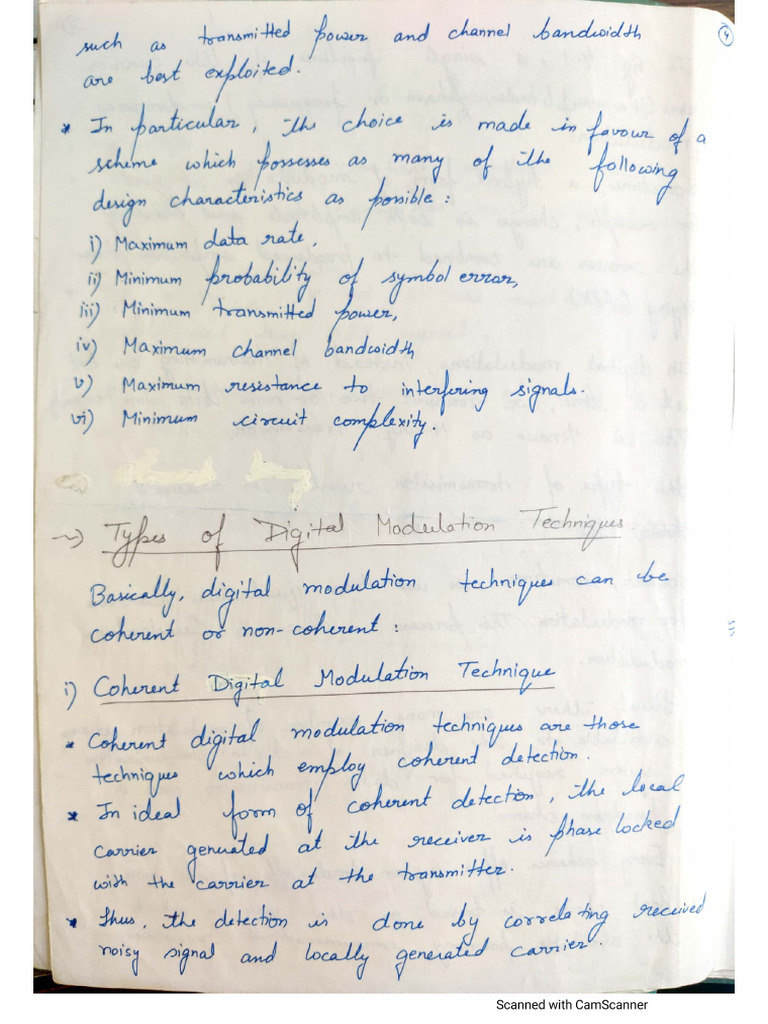 4
such as transmitted power and channel bandwidth
are best exploited.
* In particular, the choice is made in favour of a
scheme which possesses as many of the following
design characteristics as possible:
i) Maximum data rate,
ii) Minimum probability of symbol error,
iii) Minimum transmitted power,
iv) Maximum channel bandwidth
v) Maximum resistance to interfering signals.
vi) Minimum circuit complexity.
~) Types of Digital Modulation Techniques
Basically, digital modulation techniques can be
coherent or non-coherent:
i) Coherent Digital Modulation Technique
* Coherent digital modulation techniques are those
techniques which employ coherent detection.
* In ideal form of coherent detection, the local
carrier generated at the receiver is phase locked
with the carrier at the transmitter.
* Thus, the detection is done by correlating received
noisy signal and locally generated carrier.
Scanned with CamScanner